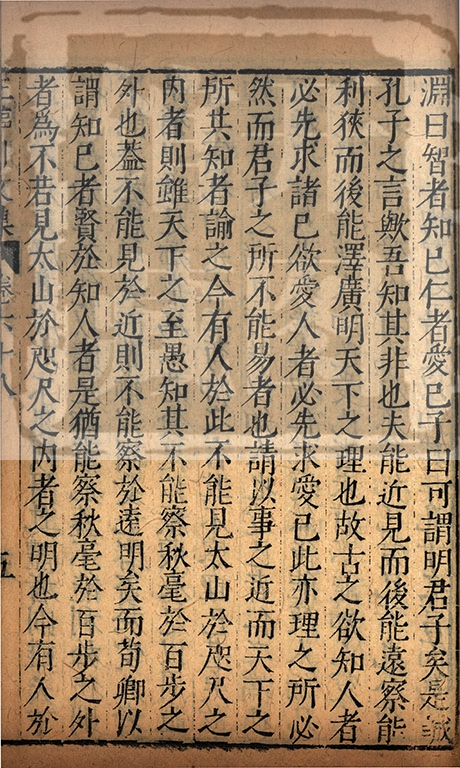 淵曰智者知已仁者愛已子曰可謂明君子矣是誠
孔子之言歟吾知其非也夫能近見而後能遠察能
利狹而後能澤廣明天下之理也故古之欲知人者
必先求諸已欲愛人者必先求愛已此亦理之所必
然而君子之所不能易者也請以事之近而天下之
所共知者諭之今有人於此不能見太山於咫尺之
内者則雖天下之至愚知其不能察秋毫於百步之
外也葢不能見於近則不能察於遠明矣而荀卿以
謂知已者賢於知人者是猶能察秋毫於百步之外
者為不若見太山於咫尺之内者之明也今有人於
卷六十八
五